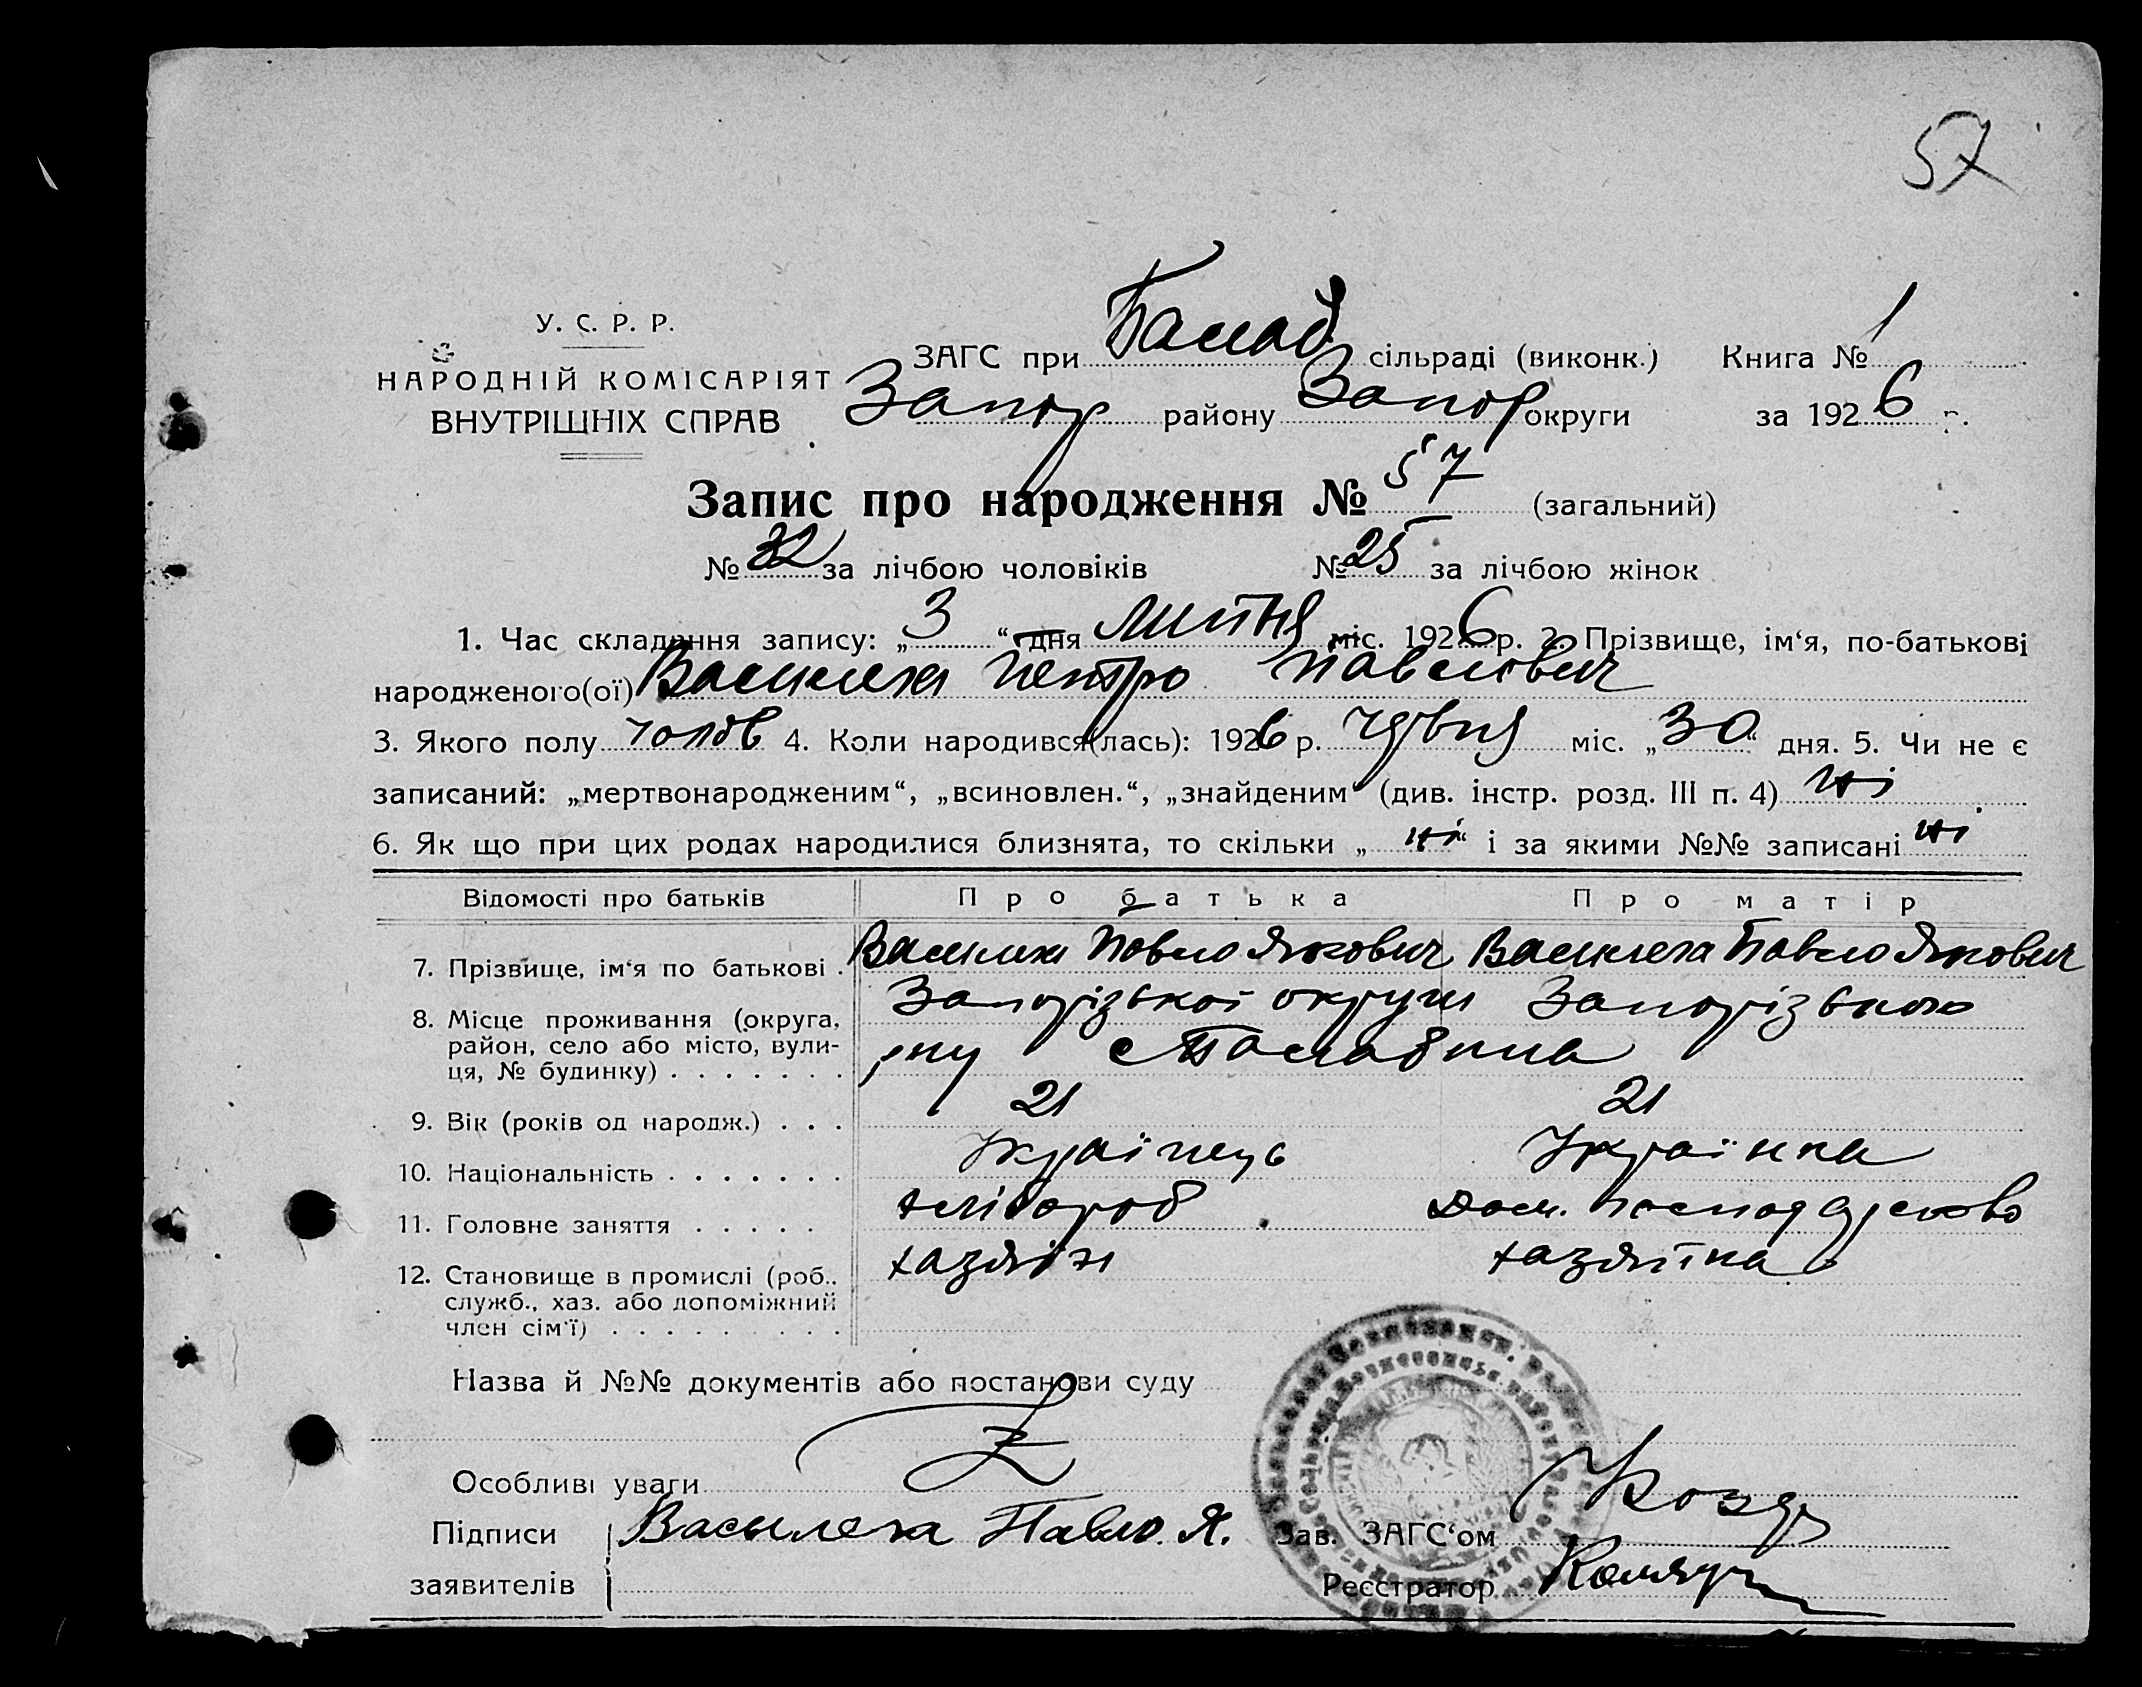 57
У. С. Р. Р.
НАРОДНІЙ КОМІСАРІЯТ
ВНУТРІШНІХ СПРАВ
ЗАГС при Балаб сільраді (виконк.) Книга № 1
Запор району Запор округи за 1926 р.
Запис про народження № 57 (загальний)
№ 32 за лічбою чоловіків № 25 за лічбою жінок
1. Час складання запису: „3“ дня липня міс. 1926 р. 2. Прізвище, ім‘я, по-батькові
народженого(ої) Василеха Петро Павлович
3. Якого полу чолов 4. Коли народився(лась): 1926 р. червня міс. „30“ дня. 5. Чи не є
записаний: „мертвонародженим“, „всиновлен.“, „знайденим“ (див. інстр. розд. III п. 4) ні
6. Як що при цих родах народилися близнята, то скільки „ні“ і за якими №№ записані ні
Відомості про батьків Про батька Про матір
7. Прізвище, ім‘я по батькові . Василеха Павло Якович Василеха Павло Якович
8. Місце проживання (округа, район, село або місто, вулиця, № будинку) . . . . . . . Запорізької округи Запорізького
р-ну с Балабина
9. Вік (років од народж.) . . . 21 21
10. Національність . . . . . . . Українець Українка
11. Головне заняття . . . . . хлібороб Дом. господарство
12. Становище в промислі (роб., служб., хаз. або допоміжний член сім‘ї) . . . . . . . . . хазяїн хазяїка
Назва й №№ документів або постанови суду
Особливі уваги
Підписи Василеха Павло. Я. Зав. ЗАГС‘ом
заявителів Реєстратор